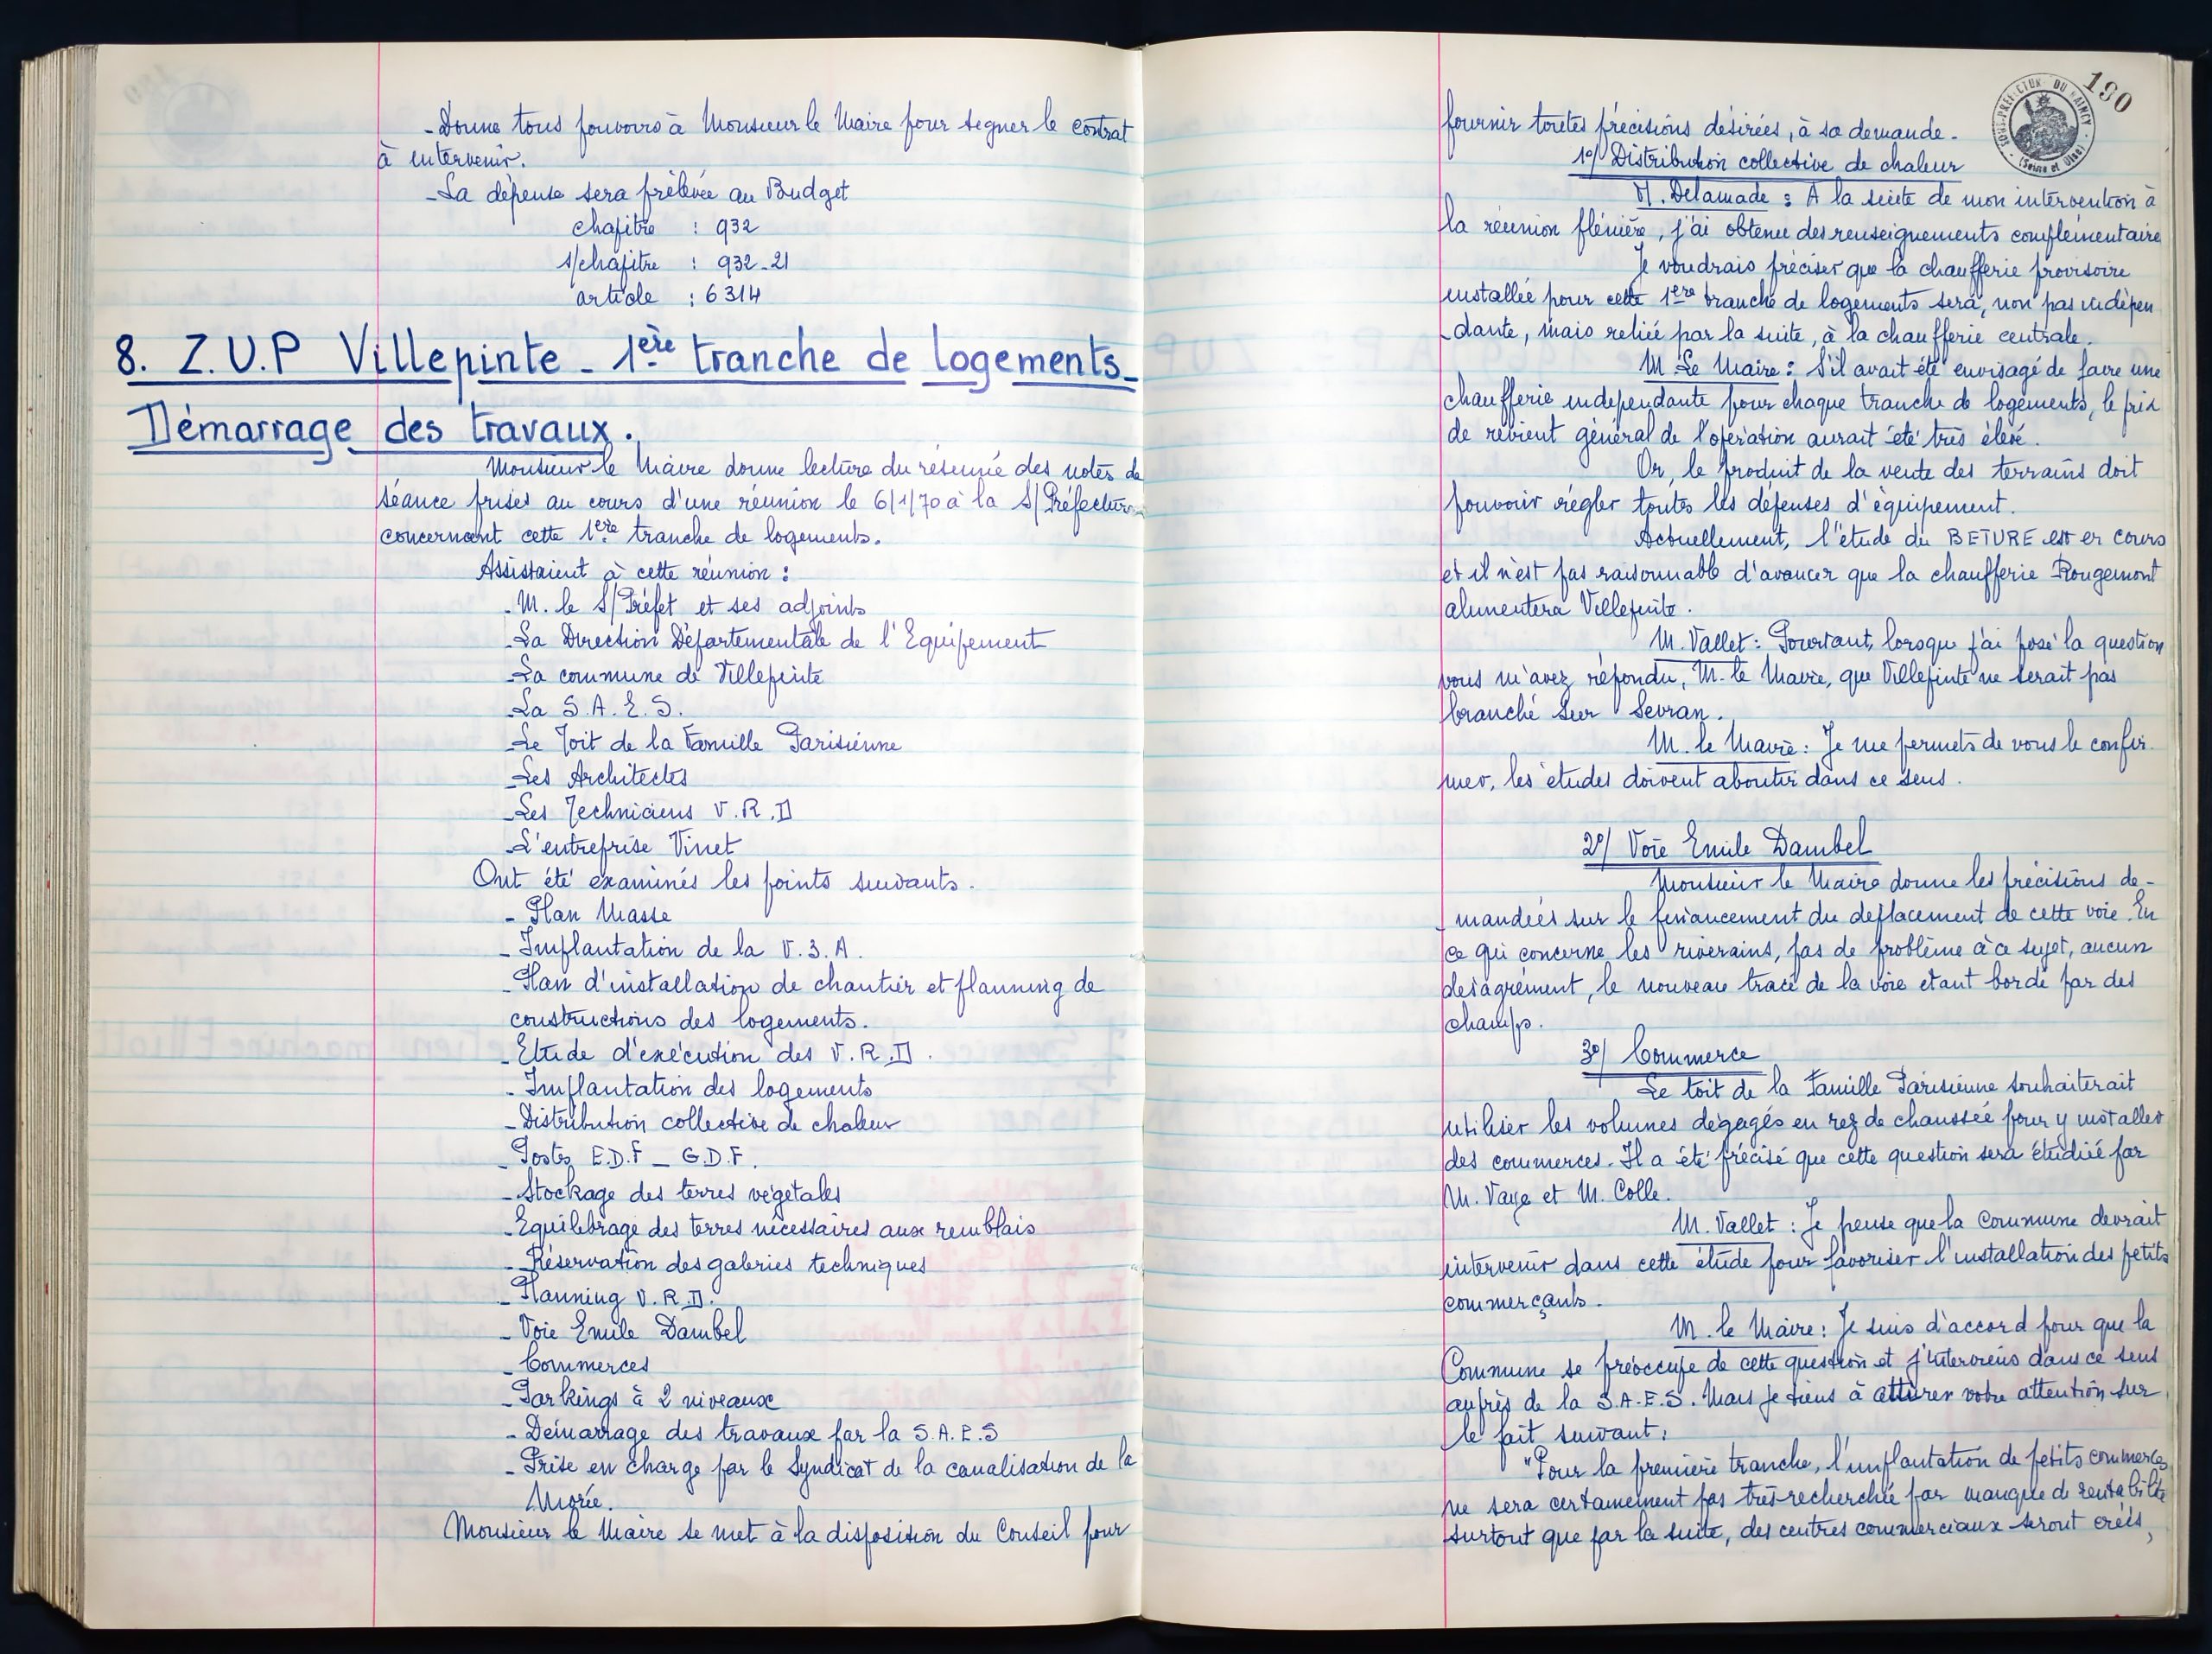 - Donne tous pouvoirs à Monsieur le Maire pour signer le contrat
à intervenir.
- La dépense sera prélevée au Budget
chapitre : 932
s/chapitre : 932-21
article : 6314
8. Z.U.P Villepinte - 1ère tranche de logements -
Démarrage des travaux.
Monsieur le Maire donne lecture du résumé des notes de
séance prises au cours d'une réunion le 6/1/70 à la S/Préfecture
concernant cette 1ère tranche de logements.
Assistaient à cette réunion :
- M. le S/Préfet et ses adjoints
- La Direction Départementale de l'Equipement
- La commune de Villepinte
- La S.A.E.S.
- Le Toit de la Famille Parisienne
- Les Architectes
- Les Techniciens V.R.D
- L'entreprise Vinet
Ont été examinés les points suivants.
- Plan Masse
- Implantation de la V.3.A.
- Plan d'installation de chantier et planning de
constructions des logements.
- Etude d'exécution des V.R.D.
- Implantation des logements
- Distribution collective de chaleur
- Postes E.D.F - G.D.F.
- Stockage des terres végétales
- Equilibrage des terres nécessaires aux remblais
- Réservation des galeries techniques
- Planning V.R.D.
- Voie Emile Dambel
- Commerces
- Parkings à 2 niveaux
- Démarrage des travaux par la S.A.E.S
- Prise en charge par le Syndicat de la canalisation de la
Morée.
Monsieur le Maire se met à la disposition du Conseil pour
190
SOUS-PREFECTURE DU RAINCY
(Seine et Oise)
fournir toutes précisions désirées, à sa demande.
1°/ Distribution collective de chaleur
M. Delamade : A la suite de mon intervention à
la réunion plénière, j'ai obtenu des renseignements complémentaire
Je voudrais préciser que la chaufferie provisoire
installée pour cette 1ère tranche de logements sera, non pas indépen
dante, mais reliée par la suite, à la chaufferie centrale.
M Le Maire : S'il avait été envisagé de faire une
chaufferie indépendante pour chaque tranche de logements, le prix
de revient général de l'opération aurait été très élevé.
Or, le produit de la vente des terrains doit
pouvoir régler toutes les dépenses d'équipement.
Actuellement, l'étude du BETURE est en cours
et il n'est pas raisonnable d'avancer que la chaufferie Rougemont
alimentera Villepinte.
M. Vallet : Pourtant, lorsque j'ai posé la question
vous m'avez répondu, M. le Maire, que Villepinte ne serait pas
branché sur Sevran.
M. le Maire : Je me permets de vous le confir
mer, les études doivent aboutir dans ce sens.
2°/ Voie Emile Dambel
Monsieur le Maire donne les précisions de-
mandées sur le financement du déplacement de cette voie. En
ce qui concerne les riverains, pas de problème à ce sujet, aucun
désagrément, le nouveau tracé de la voie étant bordé par des
champs.
3°/ Commerce
Le toit de la Famille Parisienne souhaiterait
utiliser les volumes dégagés en rez de chaussée pour y installer
des commerces. Il a été précisé que cette question sera étudiée par
M. Vaye et M. Colle.
M. Vallet : Je pense que la Commune devrait
intervenir dans cette étude pour favoriser l'installation des petits
commerçants.
M. le Maire : Je suis d'accord pour que la
Commune se préoccupe de cette question et j'interviens dans ce sens
auprès de la S.A.E.S. Mais je tiens à attirer votre attention sur
le fait suivant :
"Pour la première tranche, l'implantation de petits commerces
ne sera certainement pas très recherchée par manque de rentabilité
surtout que par la suite, des centres commerciaux seront créés,